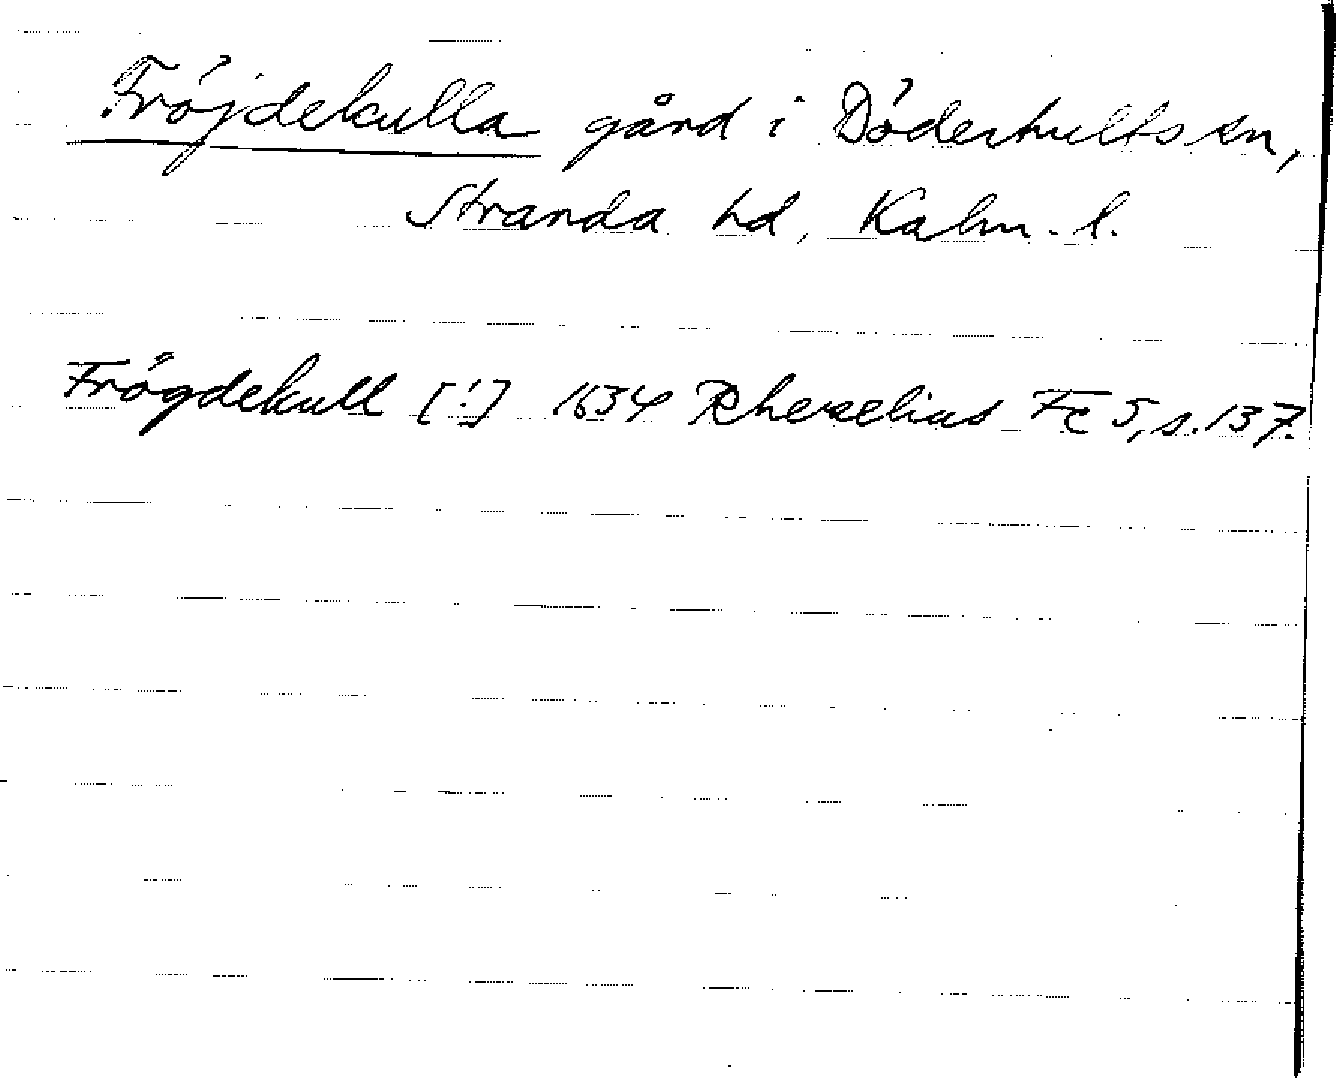 Fröjdekulla gård i Döderhults sn,
Stranda hd, Kalm. l.
Frögdekull [!] 1634 Rhezelius Fc 5, s. 137.